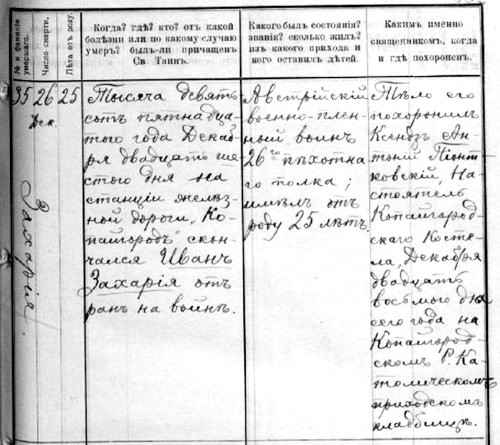 № и фамилія умершаго.
Число смерти.
Лѣта отъ роду.
Когда? гдѣ? кто? отъ какой
болѣзни или по какому случаю
умеръ? былъ-ли причащенъ
Св Таинъ.
Какого былъ состоянія?
званія? сколько жилъ?
изъ какого прихода и
кого оставилъ дѣтей.
Какимъ именно
священникомъ, когда
и гдѣ похороненъ.
35
Захарія.
26
Дек.
25
Тысяча девять
сотъ пятнадца
таго года Декаб
ря двадцать ше
стого дня на
станціи желѣз
ной дороги „Ко
пайгородъ" скон
чался Иванъ
Захарія отъ
ранъ на войнѣ.
Австрійскій
военно-плен
ный воинъ
26го пѣхотна
го полка;
имѣлъ отъ
роду 25 лѣтъ.
Тѣло его
похоронилъ
Ксендзъ Ан
тоній Піонт
ковскій, На
стоятель
Копайгород
скаго Косте
ла, Декабря
двадцать
восьмого дня
сего года на
Копайгород
скомъ Р. Ка
толическомъ
приходскомъ
кладбищѣ.